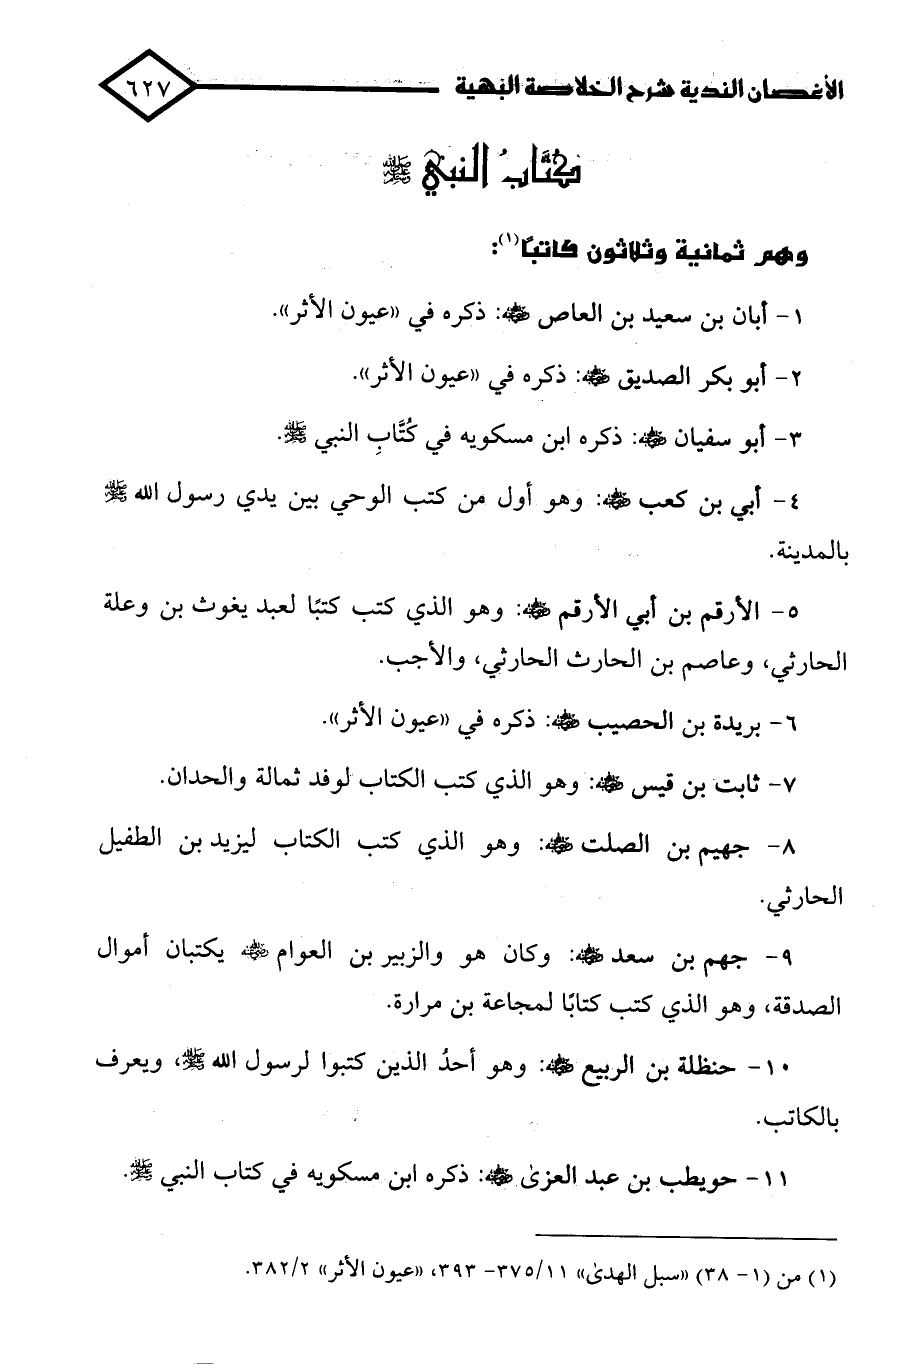 الأغصان الندية شرح الخلاصة البهية
٦٢٧
كُتَّابُ النبي ﷺ
وهم ثمانية وثلاثون كاتبًا(١):
١- أبان بن سعيد بن العاص رضي الله عنه: ذكره في «عيون الأثر».
٢- أبو بكر الصديق رضي الله عنه: ذكره في «عيون الأثر».
٣- أبو سفيان رضي الله عنه: ذكره ابن مسكويه في كُتَّابِ النبي ﷺ.
٤- أبي بن كعب رضي الله عنه: وهو أول من كتب الوحي بين يدي رسول الله ﷺ
بالمدينة.
٥- الأرقم بن أبي الأرقم رضي الله عنه: وهو الذي كتب كتبًا لعبد يغوث بن وعلة
الحارثي، وعاصم بن الحارث الحارثي، والأجب.
٦- بريدة بن الحصيب رضي الله عنه: ذكره في «عيون الأثر».
٧- ثابت بن قيس رضي الله عنه: وهو الذي كتب الكتاب لوفد ثمالة والحدان.
٨- جهيم بن الصلت رضي الله عنه: وهو الذي كتب الكتاب ليزيد بن الطفيل
الحارثي.
٩- جهم بن سعد رضي الله عنه: وكان هو والزبير بن العوام رضي الله عنه يكتبان أموال
الصدقة، وهو الذي كتب كتابًا لمجاعة بن مرارة.
١٠- حنظلة بن الربيع رضي الله عنه: وهو أحدُ الذين كتبوا لرسول الله ﷺ، ويعرف
بالكاتب.
١١- حويطب بن عبد العزىٰ رضي الله عنه: ذكره ابن مسكويه في كتاب النبي ﷺ.
(١) من (١- ٣٨) «سبل الهدىٰ» ١١/ ٣٧٥- ٣٩٣، «عيون الأثر» ٢/ ٣٨٢.